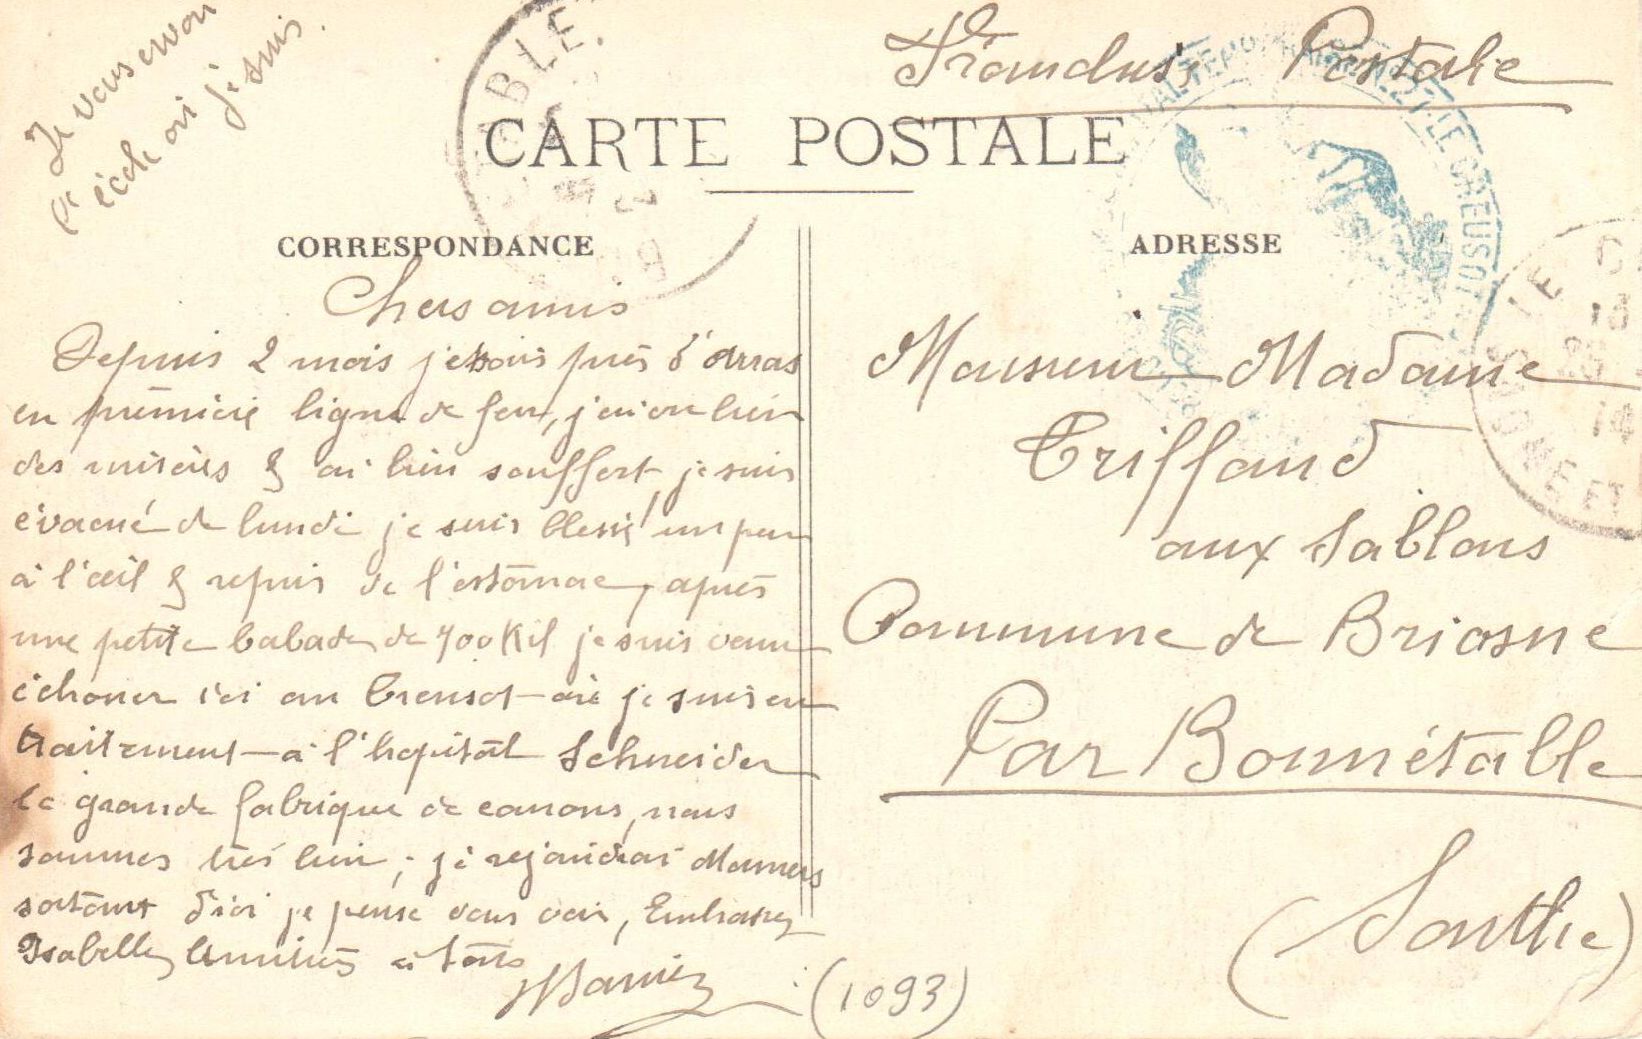 Je vous envoi
l'école où je suis.
Franchise Postale
CARTE POSTALE
CORRESPONDANCE
ADRESSE
Chers amis
Depuis 2 mois j'etais près d'Arras
en première ligne de feu, j'ai eu bien
des miseres & ai bien souffert, je suis
évacué de lundi je suis blessé un peu
à l'œil & repuis de l'estomac, après
une petite balade de 700 Kil je suis venu
échouer ici au Creusot où je suis en
traitement à l'hopital Schneider
la grande fabrique de canons, nous
sommes très bien, je rejoindrai Mamers
sortant d'ici je pense vous voir, Embrassez
Isabelle, Amitiés à tous
Monsieur Madame
Triffaud
aux Sablons
Commune de Briosne
Par Bonnétable
(Sarthe)
(1093)
ABLE
N. 27 LE CREUSOT
LE
14
ET